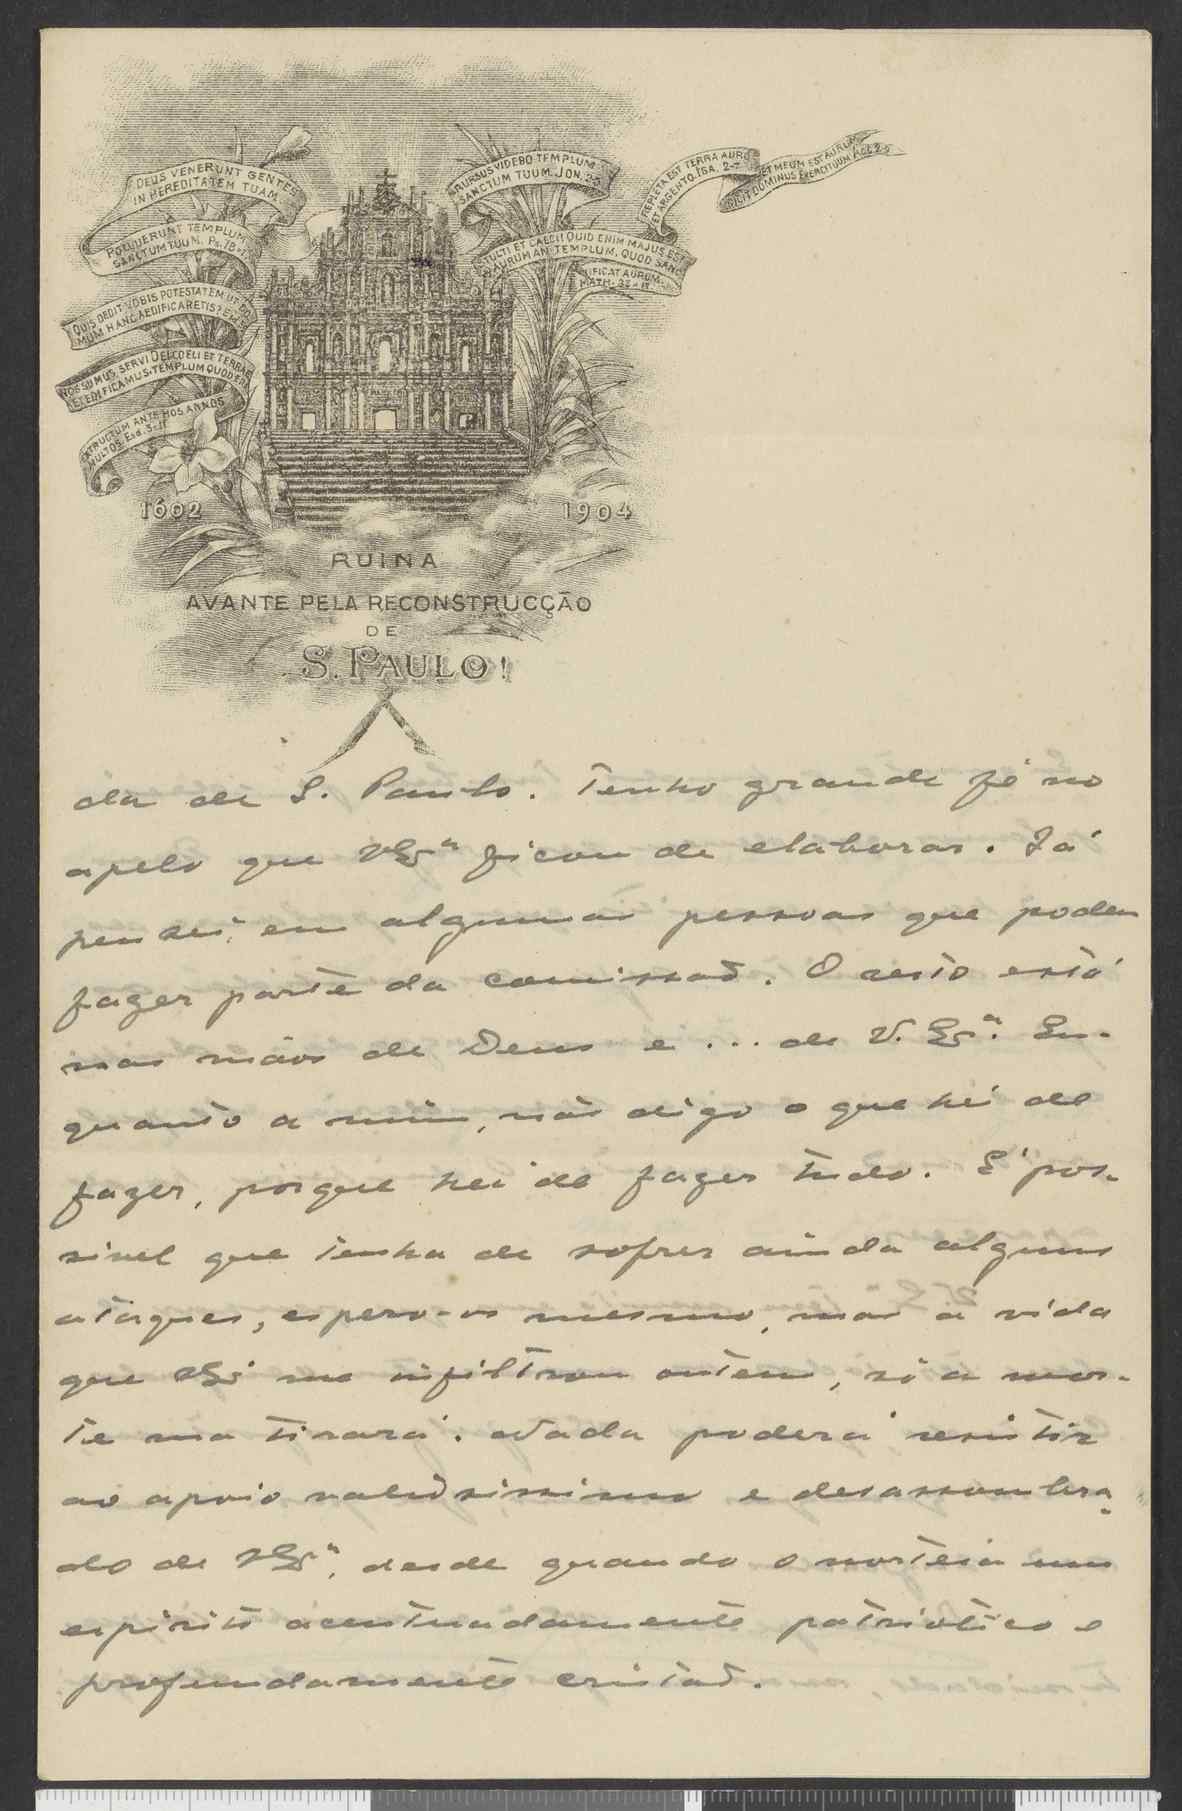 DEUS VENERUNT GENTES
IN HEREDITATEM TUAM
POLUERUNT TEMPLUM
SANCTUM TUUM. Ps. 78-1
QUIS DEDIT VOBIS POTESTATEM UT DO
MUM HANC AEDIFICARETIS?
NOS SUMUS SERVI DEI COELI ET TERRAE
ET EDIFICAMUS TEMPLUM QUOD ERAT
EXTRUCTUM ANTE HOS ANNOS
MULTOS. Esd. 5-11
RURSUS VIDEBO TEMPLUM
SANCTUM TUUM. JON. 2-5
STULTI ET CAECI! QUID ENIM MAJUS EST
AURUM AN TEMPLUM, QUOD SANC
TIFICAT AURUM.
MATH. 23-17
REPLETA EST TERRA AURO
ET ARGENTO. ISA. 2-7
ET MEUM EST AURUM
DICIT DOMINUS EXERCITUUM
1602
1904
RUINA
AVANTE PELA RECONSTRUCÇÃO
DE
S. PAULO!
da de S. Paulo. Tenho grande fé no
apelo que VExª ficou de elaborar. Já
pensei em algumas pessoas que podem
fazer parte da comissão. O resto está
nas mãos de Deus e ... de V. Exª. En-
quanto a mim, não digo o que hei de
fazer, porque hei de fazer tudo. É pos-
sivel que tenha de sofrer ainda alguns
ataques, espero-os mesmo, mas a vida
que VExª me infiltrou ontem, só a mor-
te ma tirará. Nada poderá resistir
ao apoio validissimo e desassombra-
do de VExª, desde quando o norteia um
espirito acentuadamente patriotico e
profundamente cristão.